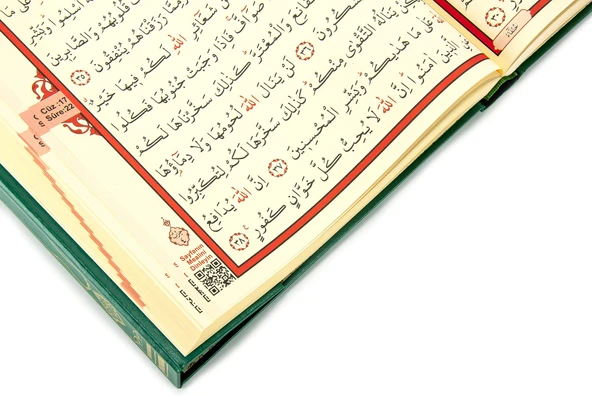 اَسْلِمُوا وَبَشِّرِ
قُلُوبُهُمْ وَالصَّابِرِينَ
رَزَقْنَاهُمْ يُنْفِقُونَ ﴿٣٥﴾
شَعَائِرِ اللّٰهِ لَكُمْ فِيهَا خَيْرٌ
صَوَافَّ فَاِذَا وَجَبَتْ جُنُوبُهَا فَكُلُوا
الْقَانِعَ وَالْمُعْتَرَّ كَذٰلِكَ سَخَّرْنَاهَا لَكُمْ
تَشْكُرُونَ ﴿٣٦﴾ لَنْ يَنَالَ اللّٰهَ لُحُومُهَا وَلَا دِمَاؤُهَا
يَنَالُهُ التَّقْوٰى مِنْكُمْ كَذٰلِكَ سَخَّرَهَا لَكُمْ لِتُكَبِّرُوا
عَلٰى مَا هَدٰيكُمْ وَبَشِّرِ الْمُحْسِنِينَ ﴿٣٧﴾ اِنَّ اللّٰهَ يُدَافِعُ
الَّذِينَ اٰمَنُوا اِنَّ اللّٰهَ لَا يُحِبُّ كُلَّ خَوَّانٍ كَفُورٍ ﴿٣٨﴾
Cüz :17
Sûre:22
Sayfanın
Mealini
Dinleyin